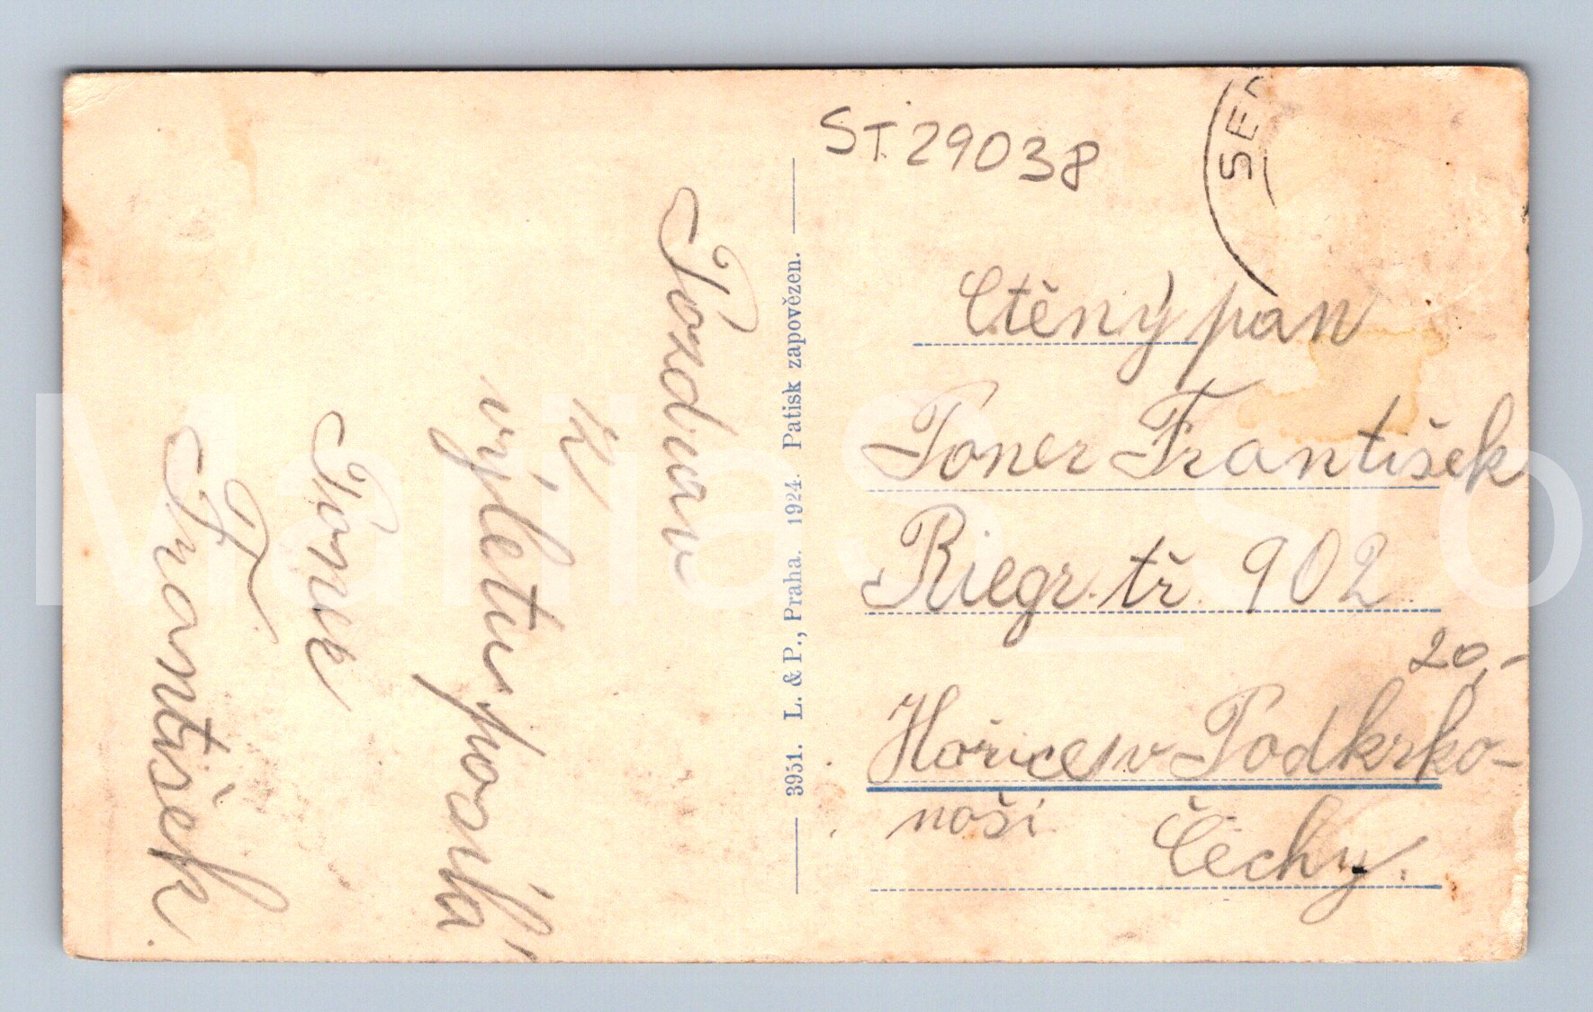 ST. 29038
SEM
Pozdrav
z
výletu posílá
Poner
František.
3951. L. & P., Praha. 1924. Patisk zapovězen.
Ctěný pan
Poner František
Riegr. tř. 902
20,-
Hořice v Podkrko-
noší
Čechy.